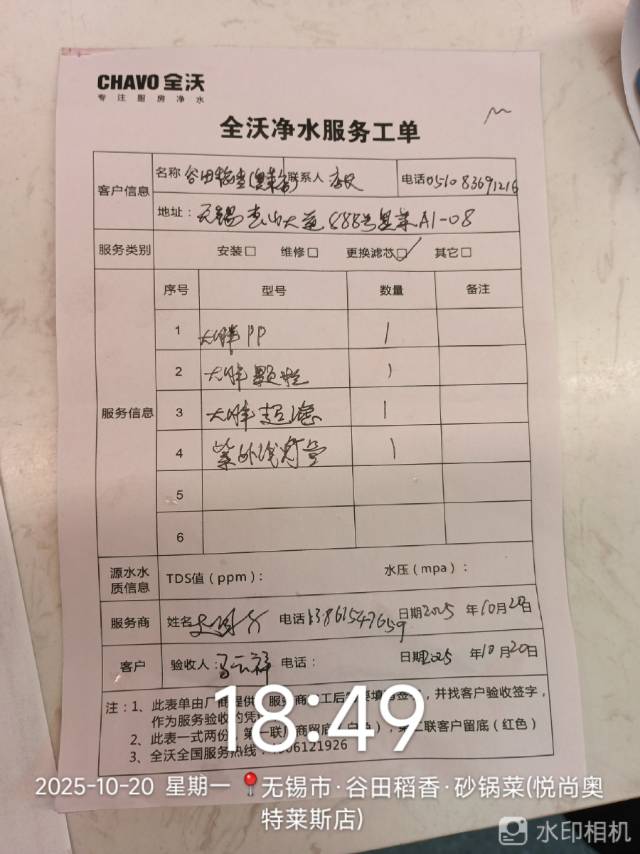 CHAVO 全沃
专注厨房净水
全沃净水服务工单
客户信息 名称 谷田稻香(奥莱店) 联系人 电话 0510 83691216
地址: 无锡 大道 888号奥莱A1-08
服务类别 安装□ 维修□ 更换滤芯☑ 其它□
服务信息 序号 型号 数量 备注
1 大胖PP 1
2 大胖颗粒 1
3 大胖超滤 1
4 紫外线灯管 1
5
6
源水水质信息 TDS值(ppm): 水压(mpa):
服务商 姓名 电话 13861547659 日期2025年10月20日
客户 验收人: 马云祥 电话: 日期2025年10月20日
注: 1、此表单由厂商提供 服务商 工后 签 ,并找客户验收签字,
作为服务验收的凭
2、此表一式两份,第一联厂商留底(白色),第二联客户留底(红色)
3、全沃全国服务热线: 4006121926
18:49
2025-10-20 星期一 📍无锡市·谷田稻香·砂锅菜(悦尚奥
特莱斯店)
水印相机